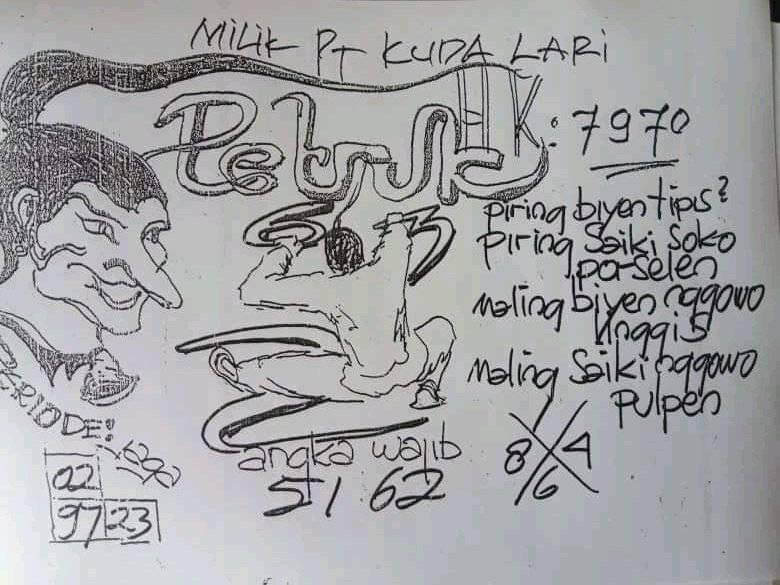 MILIK PT KUDA LARI
Petruk
HK: 7970
piring biyen tipis?
piring Saiki Soko
porselen
maling biyen nggowo
linggis
maling Saiki nggowo
pulpen
PERIODE:
02
97 23
angka wajib
51 62
8 4
6